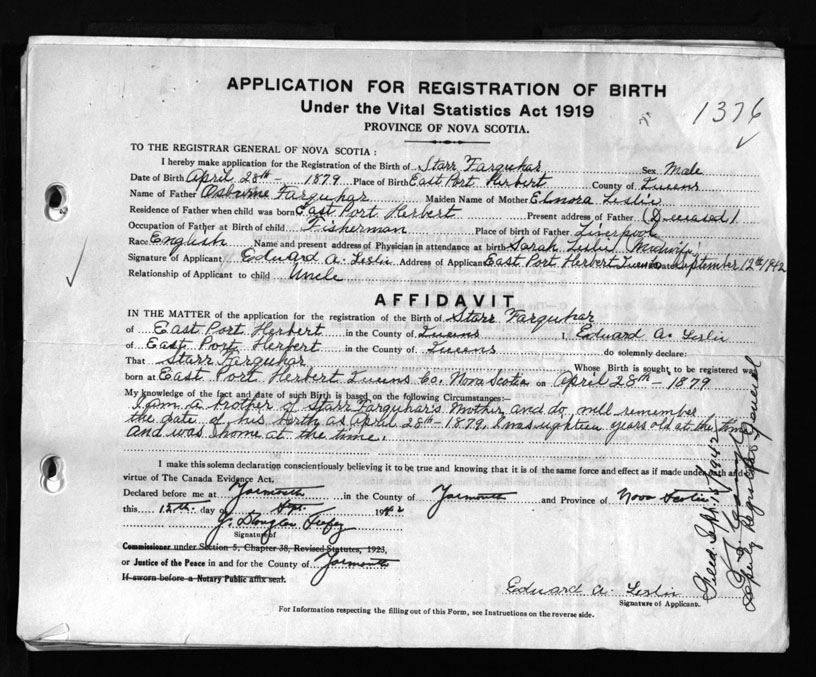 APPLICATION FOR REGISTRATION OF BIRTH
Under the Vital Statistics Act 1919
1376
PROVINCE OF NOVA SCOTIA.
TO THE REGISTRAR GENERAL OF NOVA SCOTIA:
I hereby make application for the Registration of the Birth of Starr Farquhar Sex Male
Date of Birth April 28th - 1879 Place of Birth East Port Herbert County of Queens
Name of Father Osburne Farquhar Maiden Name of Mother Elnora Leslie
Residence of Father when child was born East Port Herbert Present address of Father (Deceased)
Occupation of Father at Birth of child Fisherman Place of birth of Father Liverpool
Race English Name and present address of Physician in attendance at birth Sarah Leslie, Midwife
Signature of Applicant Edward A. Leslie Address of Applicant East Port Herbert Queens Date September 12th 1942
Relationship of Applicant to child Uncle
AFFIDAVIT
IN THE MATTER of the application for the registration of the Birth of Starr Farquhar
of East Port Herbert in the County of Queens I, Edward A. Leslie
of East Port Herbert in the County of Queens do solemnly declare:
That Starr Farquhar Whose Birth is sought to be registered was
born at East Port Herbert Queens Co, Nova Scotia on April 28th - 1879
My knowledge of the fact and date of such Birth is based on the following Circumstances:—
I am a brother of Starr Farquhar's mother, and do well remember
the date of his birth as April 28th - 1879. I was eighteen years old at the time
and was home at the time.
I make this solemn declaration conscientiously believing it to be true and knowing that it is of the same force and effect as if made under oath and by
virtue of The Canada Evidence Act.
Declared before me at Yarmouth in the County of Yarmouth and Province of Nova Scotia
this 12th day of Sept. 1942
J. Douglas
Signature of
Commissioner under Section 5, Chapter 38, Revised Statutes, 1923,
or Justice of the Peace in and for the County of Yarmouth
If sworn before a Notary Public affix seal.
Edward A. Leslie
Signature of Applicant.
For Information respecting the filling out of this Form, see Instructions on the reverse side.
1942
Deputy Registrar General